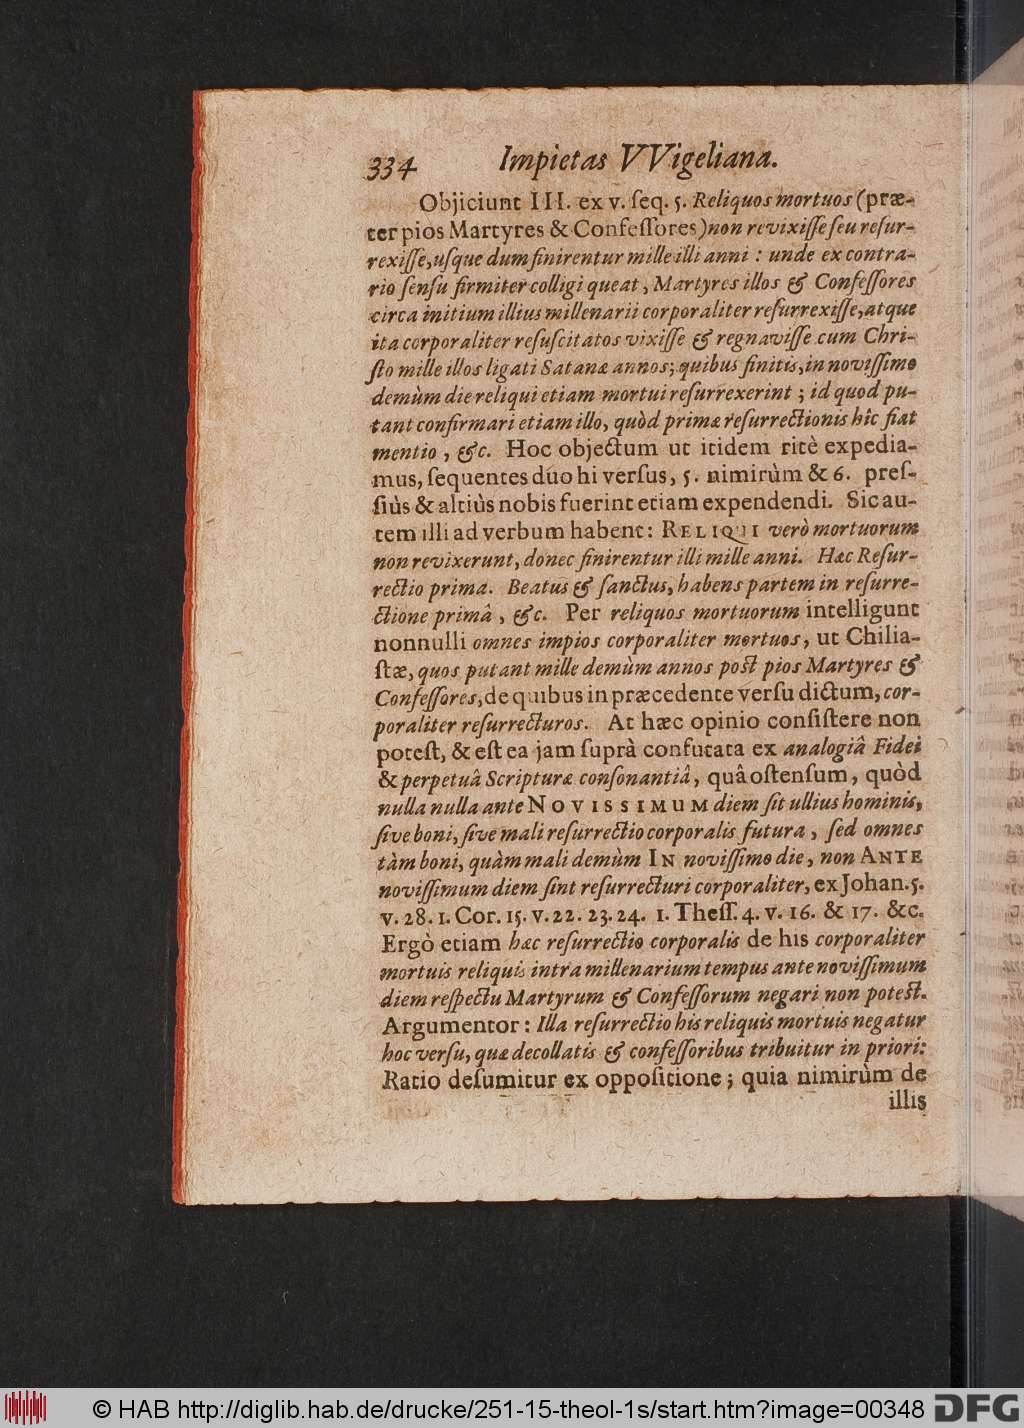 334 Impietas VVigeliana.
Objiciunt III. ex v. ſeq. 5. Reliquos mortuos (præ-
ter pios Martyres & Confeſſores) non revixiſſe ſeu reſur-
rexiſſe, uſque dum finirentur mille illi anni : unde ex contra-
rio ſenſu firmiter colligi queat, Martyres illos & Confeſſores
circa initium illius millenarii corporaliter reſurrexiſſe, atque
ita corporaliter reſuſcitatos vixiſſe & regnaviſſe cum Chri-
ſto mille illos ligati Satanæ annos; quibus finitis, in noviſſimo
demùm die reliqui etiam mortui reſurrexerint ; id quod pu-
tant confirmari etiam illo, quòd primæ reſurrectionis hîc fiat
mentio , &c. Hoc objectum ut itidem ritè expedia-
mus, ſequentes duo hi verſus, 5. nimirùm & 6. preſ-
ſiùs & altiùs nobis fuerint etiam expendendi. Sic au-
tem illi ad verbum habent: RELIQUI verò mortuorum
non revixerunt, donec finirentur illi mille anni. Hæc Reſur-
rectio prima. Beatus & ſanctus, habens partem in reſurre-
ctione primâ , &c. Per reliquos mortuorum intelligunt
nonnulli omnes impios corporaliter mortuos, ut Chilia-
ſtæ, quos putant mille demùm annos poſt pios Martyres &
Confeſſores, de quibus in præcedente verſu dictum, cor-
poraliter reſurrecturos. At hæc opinio conſiſtere non
poteſt, & eſt ea jam ſuprà confutata ex analogiâ Fidei
& perpetuâ Scripturæ conſonantiâ, quâ oſtenſum, quòd
nulla nulla ante NOVISSIMUM diem ſit ullius hominis,
ſive boni, ſive mali reſurrectio corporalis futura, ſed omnes
tàm boni, quàm mali demùm IN noviſſimo die, non ANTE
noviſſimum diem ſint reſurrecturi corporaliter, ex Johan. 5.
v. 28. 1. Cor. 15. v. 22. 23. 24. 1. Theſſ. 4. v. 16. & 17. &c.
Ergò etiam hæc reſurrectio corporalis de his corporaliter
mortuis reliquis intra millenarium tempus ante noviſſimum
diem reſpectu Martyrum & Confeſſorum negari non poteſt.
Argumentor : Illa reſurrectio his reliquis mortuis negatur
hoc verſu, quæ decollatis & confeſſoribus tribuitur in priori:
Ratio deſumitur ex oppoſitione ; quia nimirùm de
illis
© HAB http://diglib.hab.de/drucke/251-15-theol-1s/start.htm?image=00348 DFG